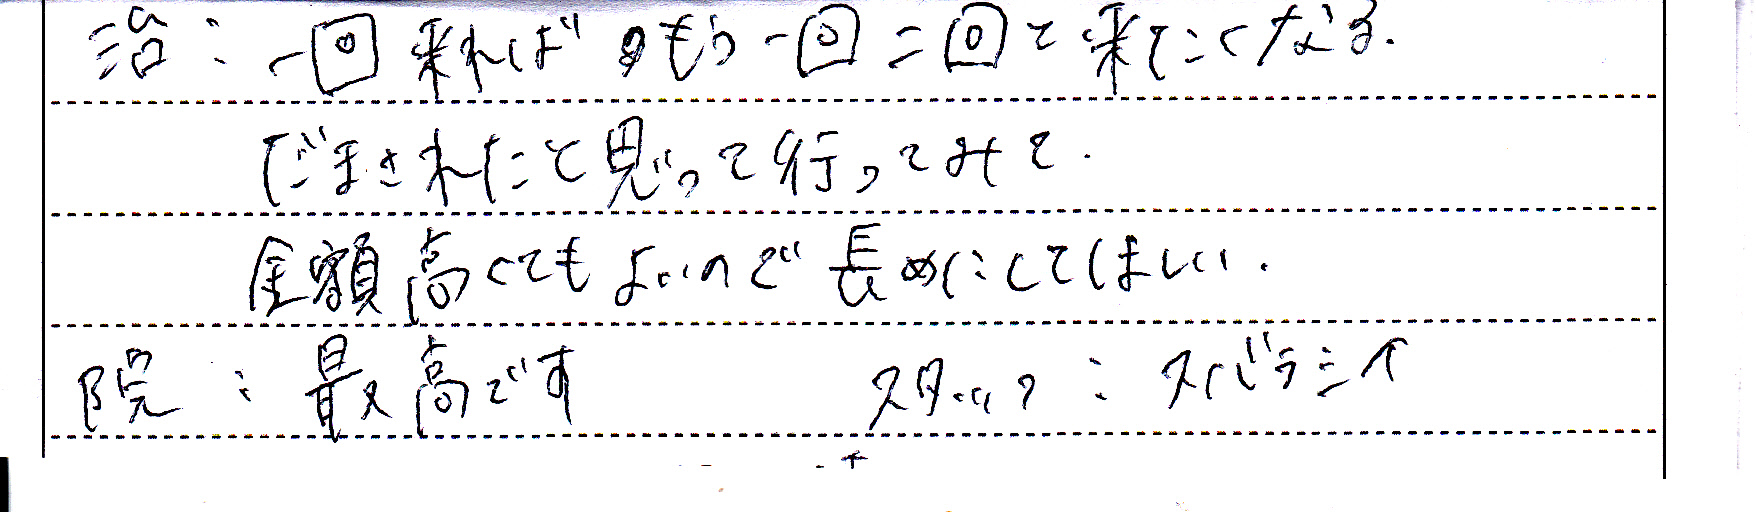 治：一回来ればもう一回二回と来たくなる.
だまされたと思って行ってみて.
金額高くてもよいので長めにしてほしい.
院：最高です スタッフ：スバラシイ